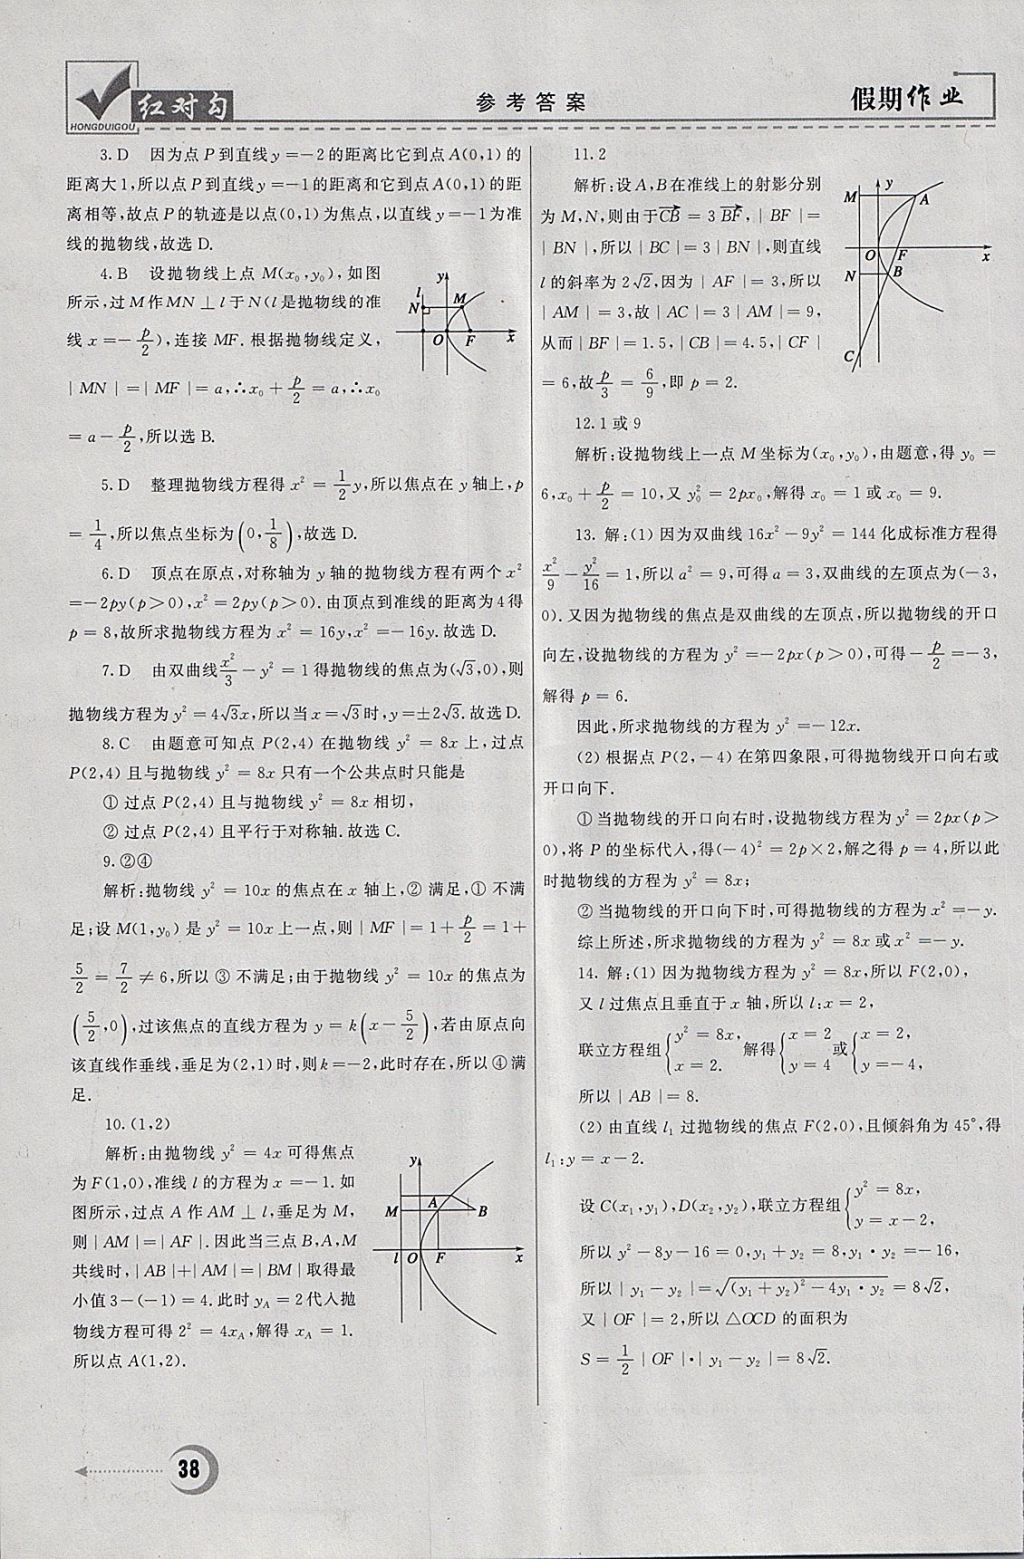 红对勾
HONGDUIGOU
参考答案
假期作业
3.D 因为点P到直线y=-2的距离比它到点A(0,1)的
距离大1,所以点P到直线y=-1的距离和它到点A(0,1)的距
离相等,故点P的轨迹是以点(0,1)为焦点,以直线y=-1为准
线的抛物线,故选D.
4.B 设抛物线上点M(x₀,y₀),如图
所示,过M作MN⊥l于N(l是抛物线的准
线x=-p/2),连接MF.根据抛物线定义,
|MN|=|MF|=a,∴x₀+p/2=a,∴x₀
=a-p/2,所以选B.
y
l
N
M
O
F
x
5.D 整理抛物线方程得x²=1/2y,所以焦点在y轴上,p
=1/4,所以焦点坐标为(0,1/8),故选D.
6.D 顶点在原点,对称轴为y轴的抛物线方程有两个x²
=-2py(p>0),x²=2py(p>0).由顶点到准线的距离为4得
p=8,故所求抛物线方程为x²=16y,x²=-16y.故选D.
7.D 由双曲线x²/3-y²=1得抛物线的焦点为(√3,0),则
抛物线方程为y²=4√3x,所以当x=√3时,y=±2√3.故选D.
8.C 由题意可知点P(2,4)在抛物线y²=8x上,过点
P(2,4)且与抛物线y²=8x只有一个公共点时只能是
①过点P(2,4)且与抛物线y²=8x相切,
②过点P(2,4)且平行于对称轴.故选C.
9.②④
解析:抛物线y²=10x的焦点在x轴上,②满足,①不满
足;设M(1,y₀)是y²=10x上一点,则|MF|=1+p/2=1+
5/2=7/2≠6,所以③不满足;由于抛物线y²=10x的焦点为
(5/2,0),过该焦点的直线方程为y=k(x-5/2),若由原点向
该直线作垂线,垂足为(2,1)时,则k=-2,此时存在,所以④满
足.
10.(1,2)
解析:由抛物线y²=4x可得焦点
为F(1,0),准线l的方程为x=-1.如
图所示,过点A作AM⊥l,垂足为M,
则|AM|=|AF|.因此当三点B,A,M
共线时,|AB|+|AM|=|BM|取得最
小值3-(-1)=4.此时y_A=2代入抛
物线方程可得2²=4x_A,解得x_A=1.
所以点A(1,2).
y
A
M
B
l
O
F
x
11.2
解析:设A,B在准线上的射影分别
为M,N,则由于CB→=3BF→,|BF|=
|BN|,所以|BC|=3|BN|,则直线
l的斜率为2√2,因为|AF|=3,所以
|AM|=3,故|AC|=3|AM|=9,
从而|BF|=1.5,|CB|=4.5,|CF|
=6,故p/3=6/9,即p=2.
y
M
A
O
F
x
N
B
C
12.1或9
解析:设抛物线上一点M坐标为(x₀,y₀),由题意,得y₀=
6,x₀+p/2=10,又y₀²=2px₀,解得x₀=1或x₀=9.
13.解:(1)因为双曲线16x²-9y²=144化成标准方程得
x²/9-y²/16=1,所以a²=9,可得a=3,双曲线的左顶点为(-3,
0).又因为抛物线的焦点是双曲线的左顶点,所以抛物线的开口
向左,设抛物线的方程为y²=-2px(p>0),可得-p/2=-3,
解得p=6.
因此,所求抛物线的方程为y²=-12x.
(2)根据点P(2,-4)在第四象限,可得抛物线开口向右或
开口向下.
①当抛物线的开口向右时,设抛物线方程为y²=2px(p>
0),将P的坐标代入,得(-4)²=2p×2,解之得p=4,所以此
时抛物线的方程为y²=8x;
②当抛物线的开口向下时,可得抛物线的方程为x²=-y.
综上所述,所求抛物线的方程为y²=8x或x²=-y.
14.解:(1)因为抛物线方程为y²=8x,所以F(2,0),
又l过焦点且垂直于x轴,所以l:x=2,
联立方程组{y²=8x,x=2.解得{x=2 y=4或{x=2,y=-4,
所以|AB|=8.
(2)由直线l₁过抛物线的焦点F(2,0),且倾斜角为45°,得
l₁:y=x-2.
设C(x₁,y₁),D(x₂,y₂),联立方程组{y²=8x,y=x-2,
所以y²-8y-16=0,y₁+y₂=8,y₁·y₂=-16,
所以|y₁-y₂|=√((y₁+y₂)²-4y₁·y₂)=8√2,
又|OF|=2,所以△OCD的面积为
S=1/2|OF|·|y₁-y₂|=8√2.
38